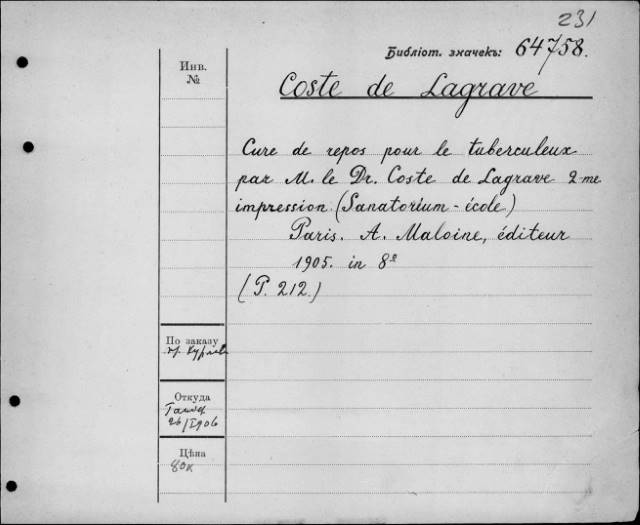 231
Библіот. значекъ: 64758.
Инв.
№
Coste de Lagrave
Cure de repos pour le tuberculeux
par M. le Dr. Coste de Lagrave 2-me
impression (Sanatorium - école)
Paris. A. Maloine, éditeur
1905. in 8º
(P. 212.)
По заказу
Откуда
26/I 906
Цѣна
80к